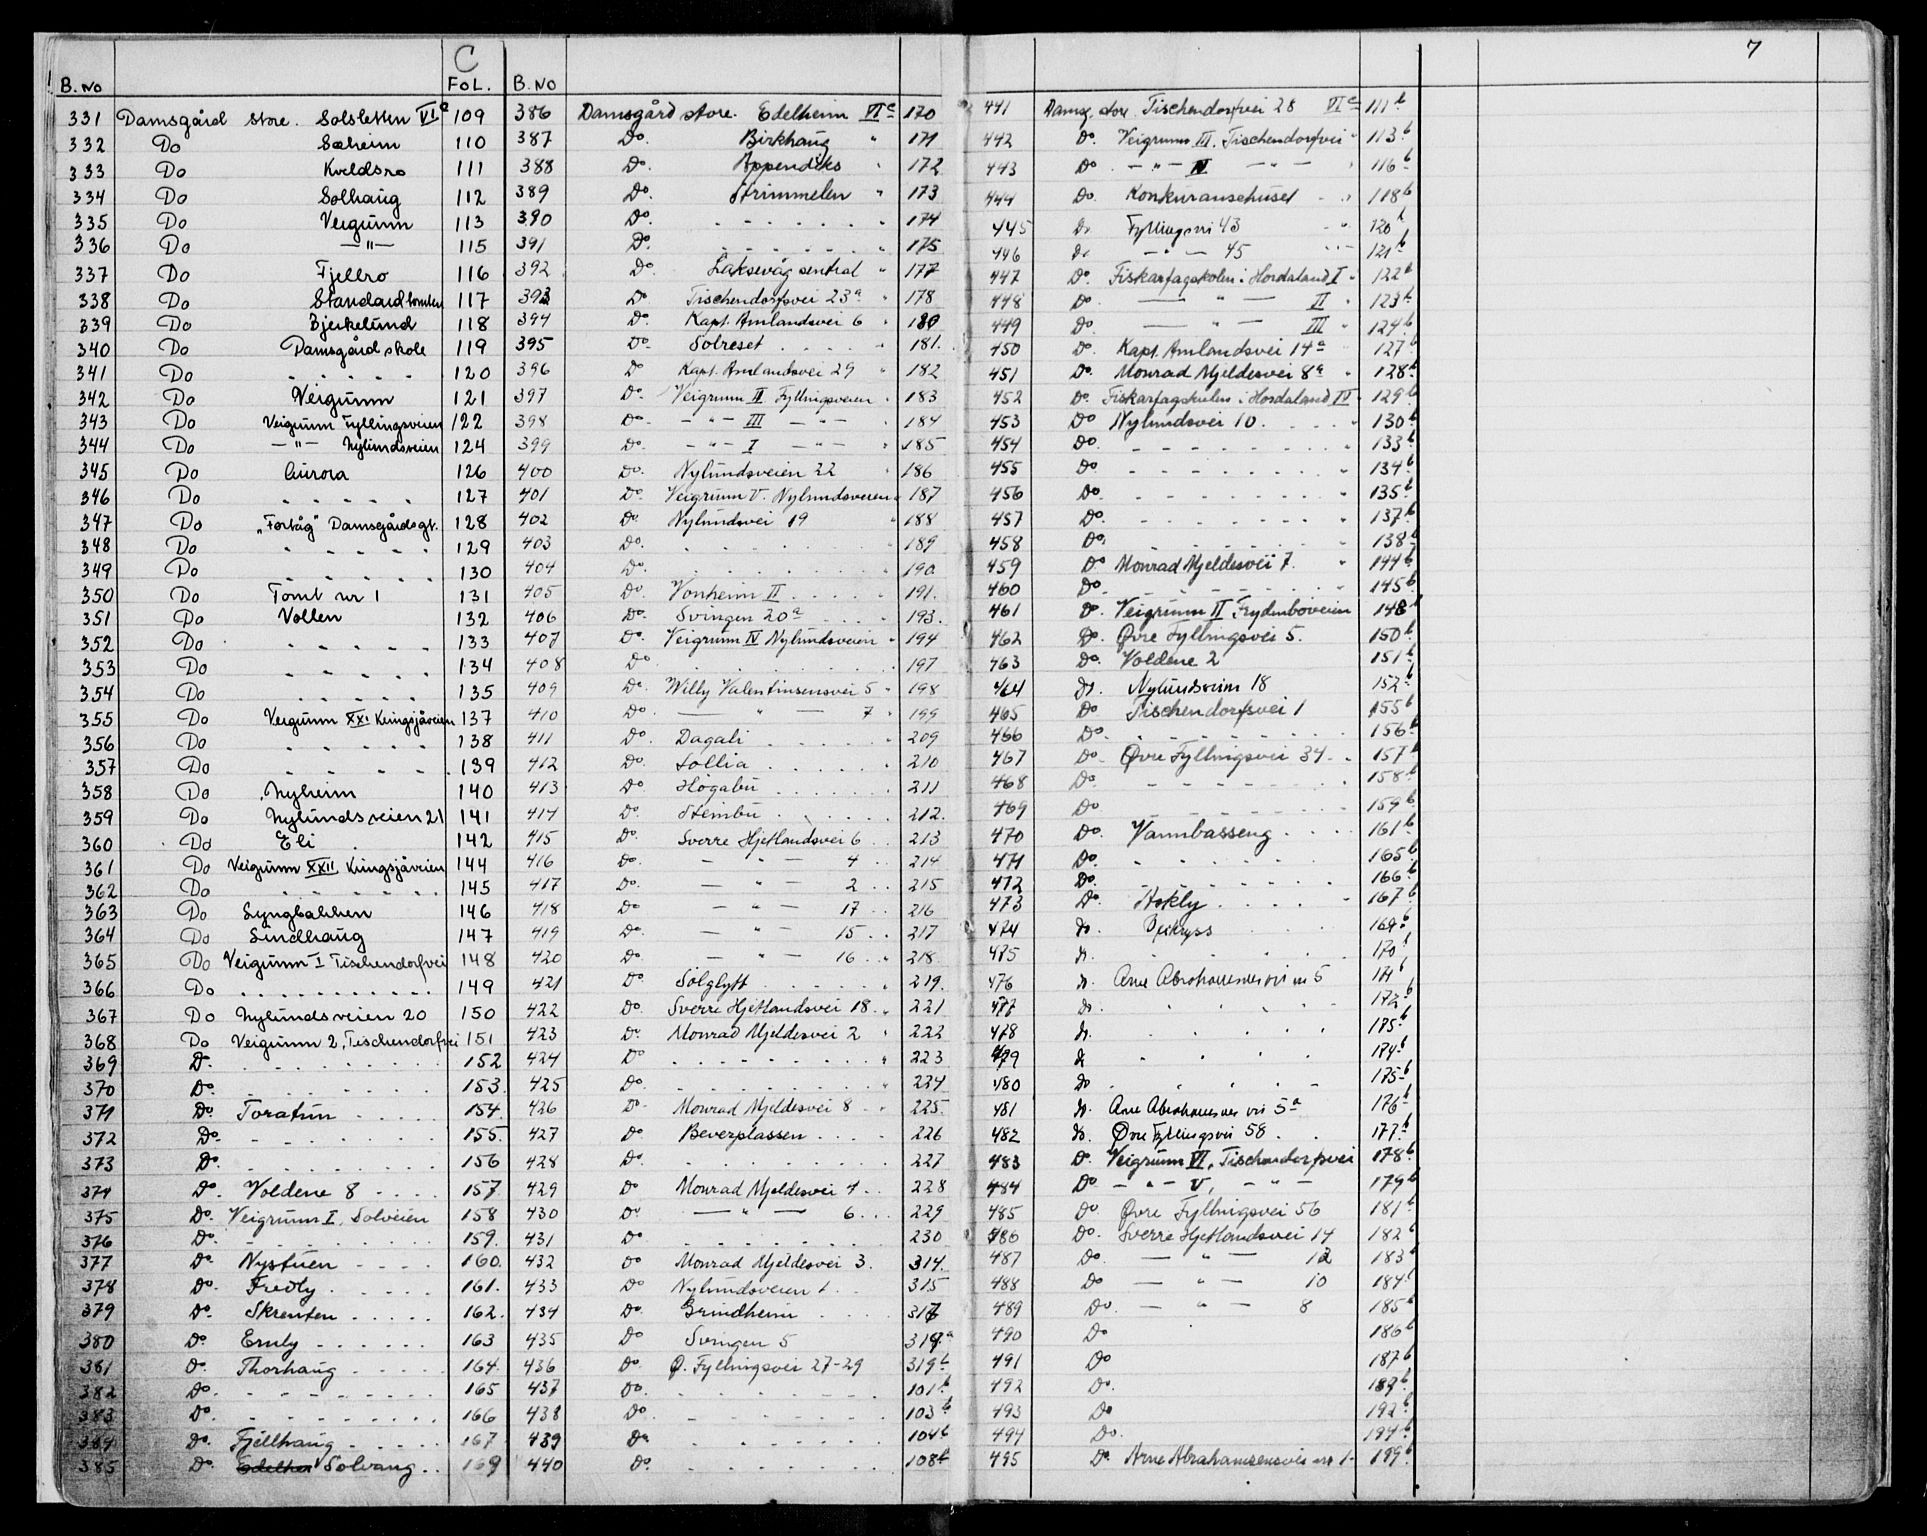 C
7
B.No FOL.
331 Damsgård store. Solsletten VIa 109
332 Do Sæheim 110
333 Do Kveldsro 111
334 Do Solhaug 112
335 Do Veigrunn 113
336 Do —"— 115
337 Do Fjellro 116
338 Do Standardtomten 117
339 Do Bjerkelund 118
340 Do Damsgård skole 119
341 Do . . . . . 120
342 Do Veigrunn 121
343 Do Veigrunn Fyllingsveien 122
344 Do —"— Nylundsveien 124
345 Do Aurora 126
346 Do . . . . . 127
347 Do „Forkåg" Damsgårdsgt. 128
348 Do . . . . . 129
349 Do . . . . . 130
350 Do Tomt nr 1 131
351 Do Vollen 132
352 Do . . . . . 133
353 Do . . . . . 134
354 Do . . . . . 135
355 Do Veigrunn XXI Kringsjåveien 137
356 Do . . . . . 138
357 Do . . . . . 139
358 Do Nyheim 140
359 Do Nylundsveien 21 141
360 Do Eli 142
361 Do Veigrunn XXII Kringsjåveien 144
362 Do . . . . . 145
363 Do Lyngbakken 146
364 Do Lindhaug 147
365 Do Veigrunn I Tischendorfvei 148
366 Do . . . . . 149
367 Do Nylundsveien 20 150
368 Do Veigrunn 2, Tischendorfvei 151
369 Do . . . . . 152
370 Do . . . . . 153.
371 Do Toratun . . . . 154.
372 Do . . . . . 155.
373 Do . . . . . 156
374 Do. Voldene 8 . . . . 157
375 Do. Veigrunn I, Solveien 158
376 Do. . . . . . 159.
377 Do Nystuen . . . . 160.
378 Do. Fredly . . . . . 161.
379 Do. Skrenten . . . . . 162.
380 Do Emly . . . . . . 163
381 Do. Thorhaug . . . . . 164.
382 Do. . . . . . 165
383 Do. . . . . . 166
384 Do. Fjellhaug . . . . . 167
385 Do. Solvang . . 169
B.No
386 Damsgård store. Edelheim VIa 170
387 Do. Birkhaug " 171
388 Do. Appendiks " 172
389 Do. Strimmelen " 173
390 Do. . . . . . " 174
391 Do. . . . . . " 175
392 Do. Laksevåg sentral " 177
393 Do Tischendorfsvei 23a " 178
394 Do Kapt. Amlandsvei 6 " 180
395 Do. Solreset . . . . " 181.
396 Do Kapt. Amlandsvei 29 " 182
397 Do. Veigrunn II Fyllingsveien " 183
398 Do. —"— III —"— " 184
399 Do. —"— I —"— " 185
400 Do. Nylundsveien 22 " 186
401 Do. Veigrunn V. Nylundsveien " 187
402 Do. Nylundsvei 19 " 188
403 Do. . . . . . " 189
404 Do. . . . . . " 190
405 Do. Vonheim II . . . . . 191.
406 Do. Svingen 20a . . . . 193.
407 Do. Veigrunn IV Nylundsveien " 194
408 Do. . . . . . 197
409 Do. Willy Valentinsensvei 5 " 198
410 Do. —"— 7 " 199
411 Do. Dagali . . . . . " 209
412 Do. Sollia . . . . . . 210
413 Do Høgabu . . . . . . 211
414 Do. Steinbu . . . . . . 212.
415 Do. Sverre Hjetlandsvei 6 . . 213
416 Do. —"— 4 . . 214
417 Do. —"— 2 . . 215
418 Do —"— 17 . . 216
419 Do. —"— 15 . . 217
420 Do. —"— 16 . . 218
421 Do Solglytt . . . . . . 219.
422 Do. Sverre Hjetlandsvei 18 . . 221
423 Do. Monrad Mjeldesvei 2 " 222
424 Do . . . . . " 223
425 Do. . . . . . " 224
426 Do. Monrad Mjeldesvei 8 . . 225.
427 Do Beverplassen . . . . 226
428 Do. . . . . . 227
429 Do Monrad Mjeldesvei 4 . . 228
430 Do —"— 6 . . . 229
431 Do . . . . . 230
432 Do Monrad Mjeldesvei 3. 314.
433 Do Nylundsveien 1 . . 315
434 Do. Grindheim . . . 317
435 Do Svingen 5 319a
436 Do. Ø. Fyllingsvei 27-29 319b
437 Do. . . . . . 101b
438 Do. . . . . . 103b
439 Do. . . . . . 104b
440 Do. . . . . . 108b
441 Damsg. store. Tischendorfvei 28 VIa 111b
442 Do. Veigrunn III. Tischendorfvei " 113b
443 Do —"— IV —"— " 116b
444 Do. Konkuransehuset . . " 118b
445 Do Fyllingsvei 43 " 120b
446 Do —"— 45 " 121b
447 Do. Fiskarfagskolen i Hordaland I " 122b
448 Do. —"— II " 123b
449 Do. —"— III " 124b
450 Do. Kapt. Amlandsvei 14a " 127b
451 Do. Monrad Mjeldesvei 8a " 128b
452 Do. Fiskarfagskulen i Hordaland IV " 129b
453 Do Nylundsvei 10 . . . . " 130b
454 Do. . . . . . " 133b
455 Do. . . . . . " 134b
456 Do. . . . . . " 135b
457 Do. . . . . . " 137b
458 Do. . . . . . 138b
459 Do Monrad Mjeldesvei 7. " 144b
460 Do. . . . . . " 145b
461 Do. Veigrunn II Frydenbøveien 148b
462 Do. Øvre Fyllingsvei 5. 150b
463 Do. Voldene 2 151b
464 Do. Nylundsveien 18 152b
465 Do Tischendorfsvei 1 155b
466 Do. . . . . . 156b
467 Do. Øvre Fyllingsvei 34 . . 157b
468 Do. . . . . . 158b
469 Do . . . . . 159b
470 Do. Vannbasseng . . . . 161b
471 Do. . . . . . 165b
472 Do. . . . . . 166b
473 Do. Askly . . . . . 167b
474 Do. Veikryss . . . . 169b
475 Do. . . . . . 170b
476 Do. Arne Abrahamsensvei nr 5 171b
477 Do. . . . . 172b
478 Do. . . . . 173b
479 Do . . . . 174b
480 Do. . . . . 175b
481 Do. Arne Abrahamsensvei 5a 176b
482 Do. Øvre Fyllingsvei 58 . . 177b
483 Do. Veigrunn VI, Tischendorfsvei 178b
484 Do —"— V, —"— 179b
485 Do Øvre Fyllingsvei 56 181b
486 Do. Sverre Hjetlandsvei 14 182b
487 Do. —"— 12 183b
488 Do —"— 10 184b
489 Do. —"— 8 185b
490 Do 186b
491 Do 187b
492 Do. 189b
493 Do 192b
494 Do. 194b
495 Do. Arne Abrahamsensvei nr 1 . 199b